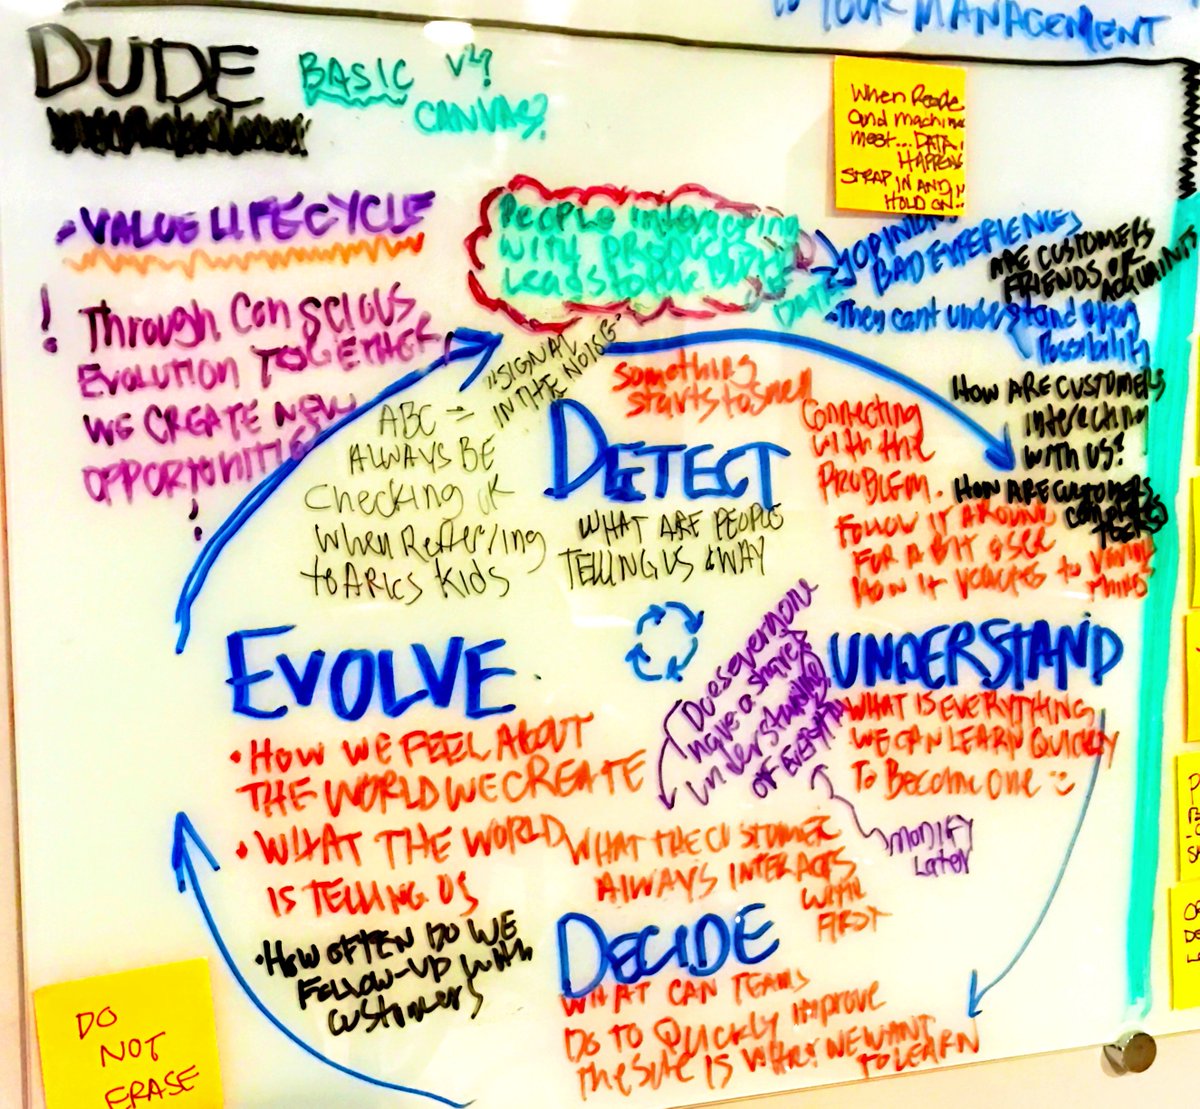 YOUR MANAGEMENT
DUDE
BASIC V4?
CANVAS?
When People
and machine
meet... DATA
HAPPENS
STRAP IN AND
HOLD ON!!
VALUE LIFECYCLE
! Through Conscious
EVOLUTION TOGETHER
WE CREATE NEW
OPPORTUNITIES
!
PEOPLE interacting
WITH PRODUCT
Leads to
DATA
OPINION
BAD EXPERIENCES
They cant understand
Possibility
ARE CUSTOMERS
FRIENDS OR
ACQUAINTS
HOW ARE CUSTOMERS
Interacting
WITH US?
HOW ARE CUSTOMERS
"SIGNAL
IN THE NOISE"
ABC =
ALWAYS BE
Checking OK
When Referring
to ARICS KIDS
something
starts to smell
DETECT
WHAT ARE PEOPLE
TELLING US & WAY
Connecting
WITH the
PROBLEM.
FOLLOW IT AROUND
FOR A BIT & SEE
HOW IT to
THINGS
EVOLVE
• HOW WE FEEL ABOUT
THE WORLD WE CREATE
• WHAT THE WORLD
IS TELLING US
• HOW OFTEN DO WE
FOLLOW-UP WITH
CUSTOMERS
Does everyone
have a shared
understanding
OF EVERYTHING
MODIFY
Later
UNDERSTAND
WHAT IS EVERYTHING
WE CAN LEARN QUICKLY
To Become one
WHAT THE CUSTOMER
ALWAYS INTERACTS
WITH
FIRST
DECIDE
WHAT CAN TEAMS
DO TO QUICKLY improve
the IS WHAT WE WANT
TO LEARN
DO
NOT
ERASE